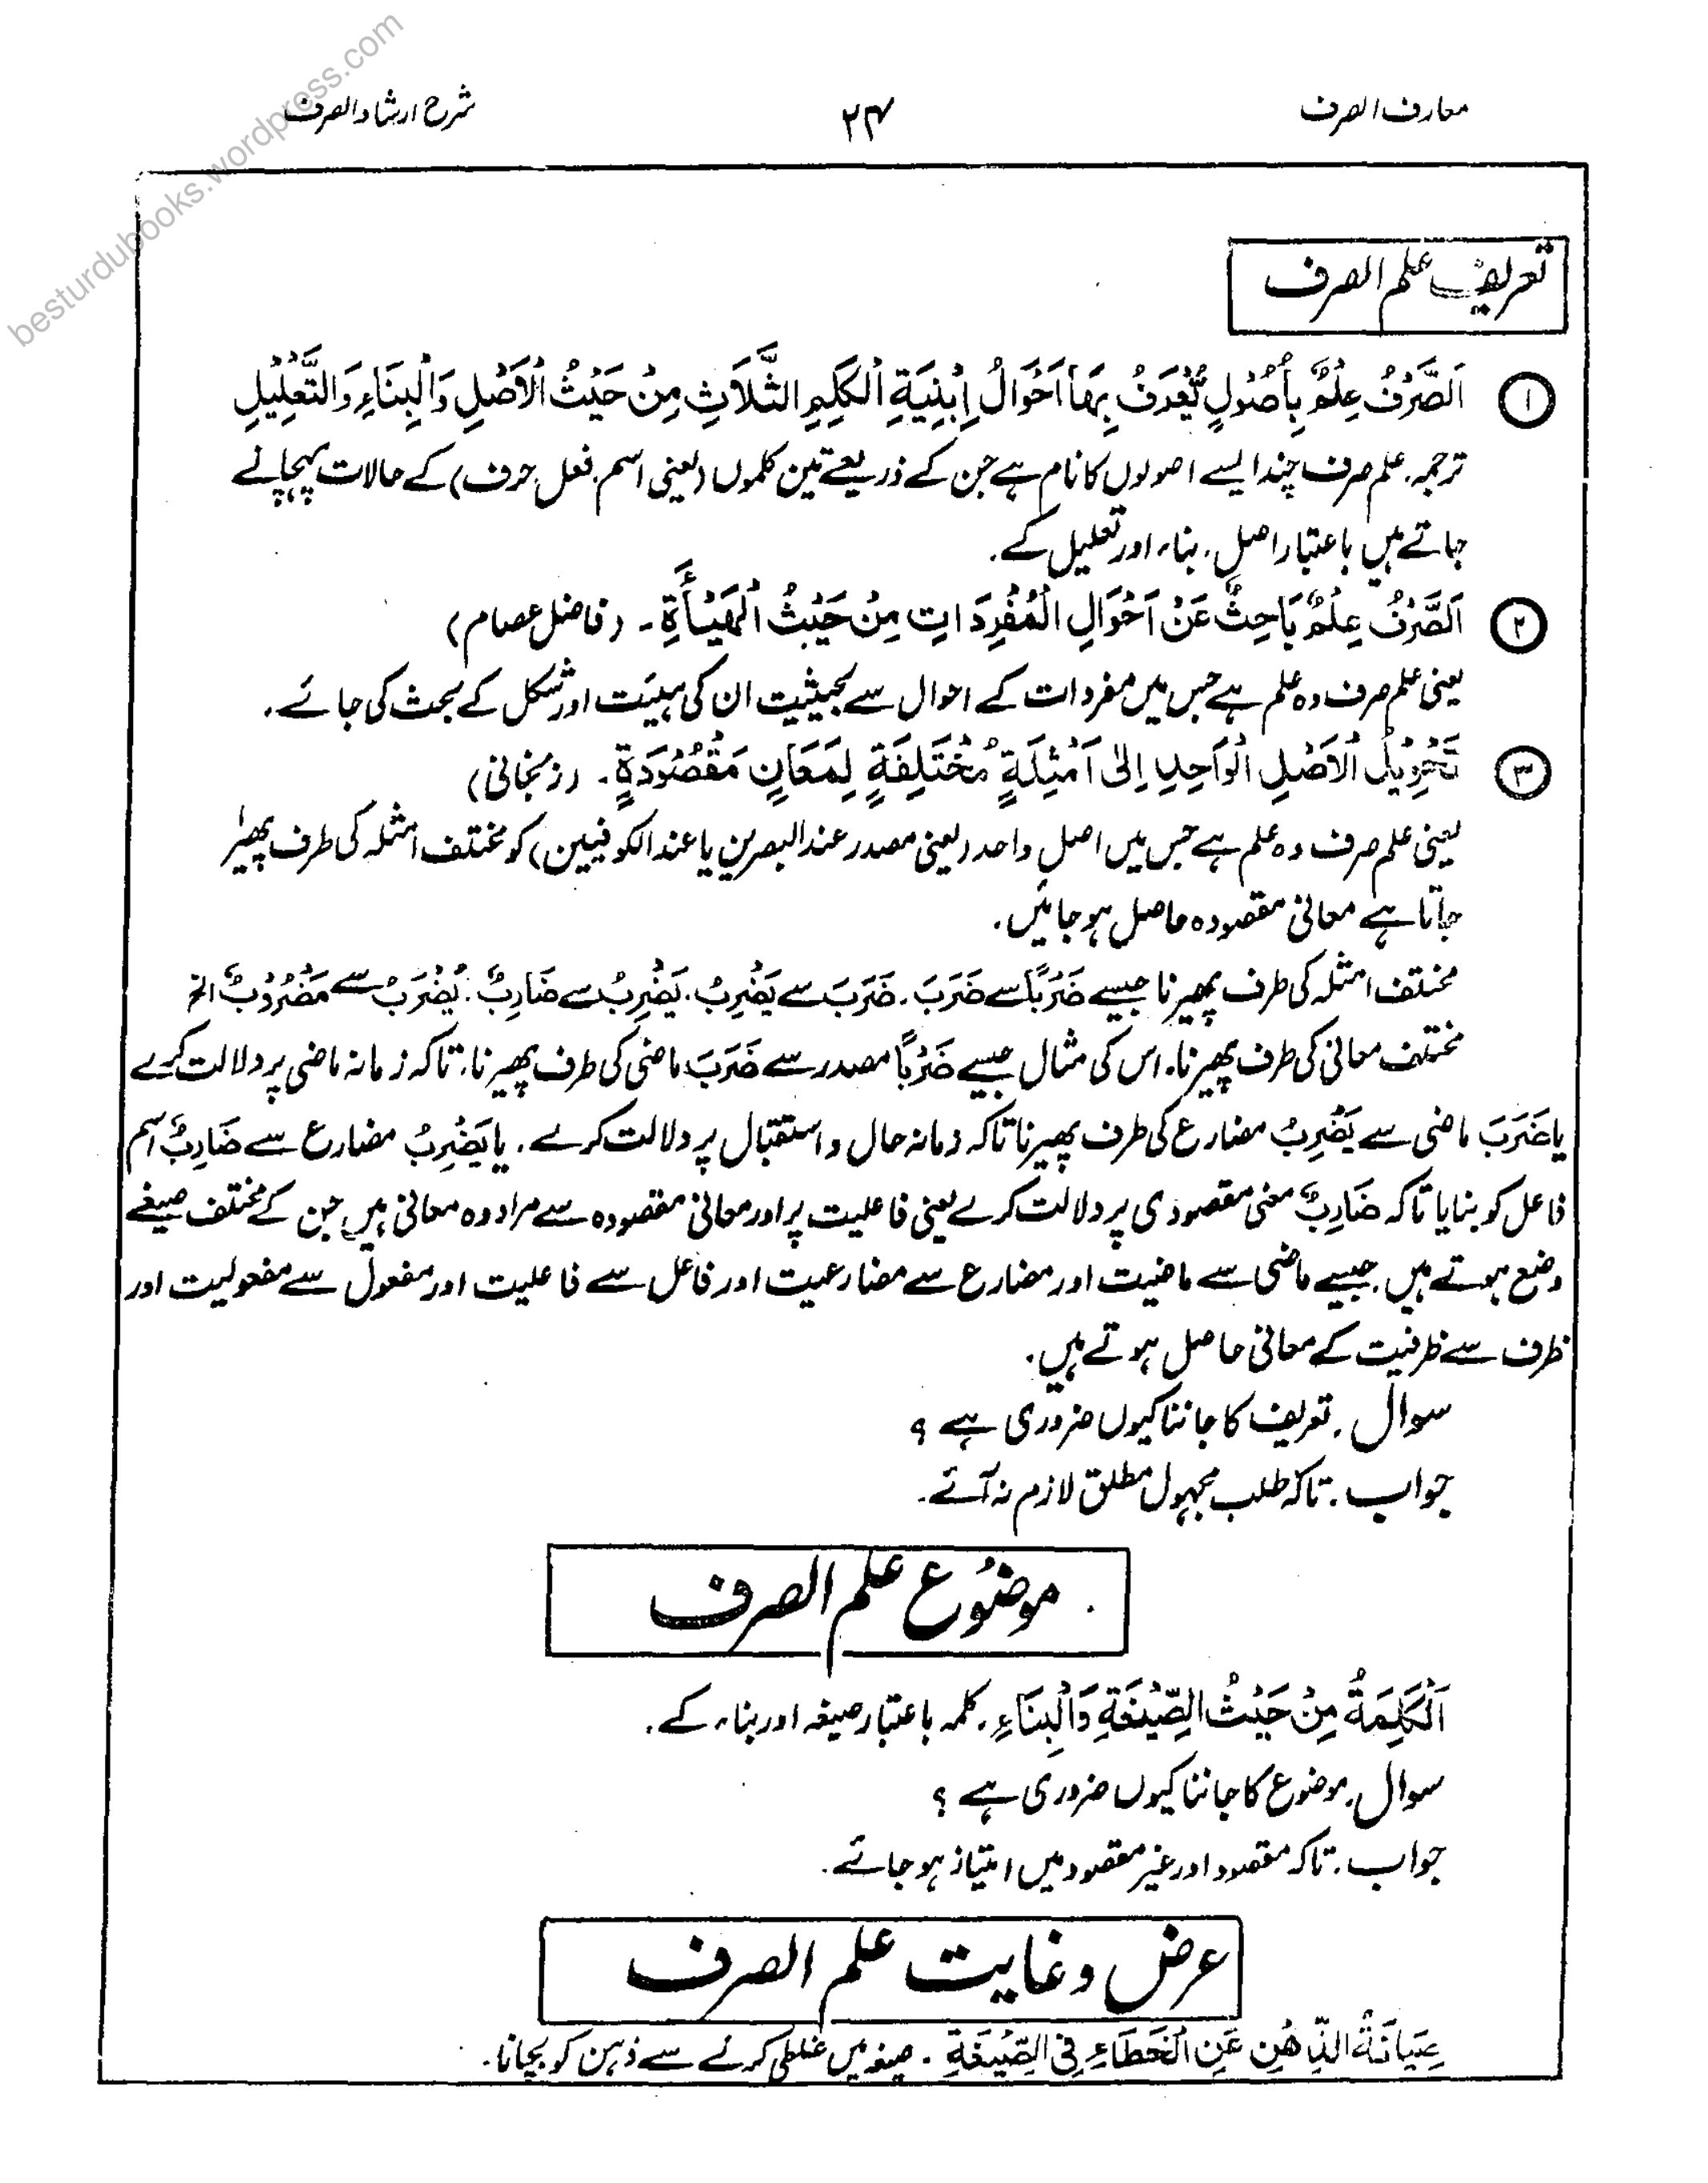 معارف الصرف ۲۴ شرح ارشاد الصرف
besturdubooks.wordpress.com
تعریف علم الصرف
① اَلصَّرْفُ عِلْمٌ بِأُصُوْلٍ يُعْرَفُ بِهَا اَحْوَالُ اِبْنِيَةِ الْكَلِمِ الثَّلَاثِ مِنْ حَيْثُ الْاَصْلِ وَالْبِنَاءِ وَالتَّعْلِيْلِ
ترجمہ۔ علم صرف چند ایسے اصولوں کا نام ہے جن کے ذریعے تین کلموں (یعنی اسم، فعل، حرف) کے حالات پہچانے
جاتے ہیں باعتبار اصل، بناء اور تعلیل کے۔
② اَلصَّرْفُ عِلْمٌ بَاحِثٌ عَنْ اَحْوَالِ الْمُفْرِدَاتِ مِنْ حَيْثُ الْهَيْأَةِ۔ (فاضل عصام)
یعنی علم صرف وہ علم ہے جس میں مفردات کے احوال سے بحیثیت ان کی ہیئت اور شکل کے بحث کی جائے۔
③ تَحْوِيْلُ الْاَصْلِ الْوَاحِدِ اِلىٰ اَمْثِلَةٍ مُخْتَلِفَةٍ لِمَعَانٍ مَقْصُوْدَةٍ۔ (زنجانی)
یعنی علم صرف وہ علم ہے جس میں اصل واحد (یعنی مصدر عند البصرین یا عند الکوفیین) کو مختلف امثلہ کی طرف پھیرا
جاتا ہے معانی مقصودہ حاصل ہو جائیں۔
مختلف امثلہ کی طرف پھیرنا جیسے ضَرْبًا سے ضَرَبَ۔ ضَرَبَ سے يَضْرِبُ۔ يَضْرِبُ سے ضَارِبٌ۔ يُضْرَبُ سے مَضْرُوْبٌ الخ
مختلف معانی کی طرف پھیرنا۔ اس کی مثال جیسے ضَرْبًا مصدر سے ضَرَبَ ماضی کی طرف پھیرنا۔ تاکہ زمانہ ماضی پر دلالت کرے
یا ضَرَبَ ماضی سے يَضْرِبُ مضارع کی طرف پھیرنا تاکہ زمانہ حال و استقبال پر دلالت کرے۔ یا يَضْرِبُ مضارع سے ضَارِبٌ اسم
فاعل کو بنایا تاکہ ضَارِبٌ معنی مقصودی پر دلالت کرے یعنی فاعلیت پر اور معانی مقصودہ سے مراد وہ معانی ہیں جن کے مختلف صیغے
وضع ہوتے ہیں۔ جیسے ماضی سے ماضیت اور مضارع سے مضارعیت اور فاعل سے فاعلیت اور مفعول سے مفعولیت اور
ظرف سے ظرفیت کے معانی حاصل ہوتے ہیں۔
سوال۔ تعریف کا جاننا کیوں ضروری ہے ؟
جواب۔ تاکہ طلب مجہول مطلق لازم نہ آئے۔
موضُوع علم الصرف
اَلْكَلِمَةُ مِنْ حَيْثُ الصِّيْغَةِ وَالْبِنَاءِ۔ کلمہ باعتبار صیغہ اور بناء کے۔
سوال۔ موضوع کا جاننا کیوں ضروری ہے ؟
جواب۔ تاکہ مقصود اور غیر مقصود میں امتیاز ہو جائے۔
عرض و غایت علم الصرف
صِيَانَةُ الذِّهْنِ عَنِ الْخَطَاءِ فِی الصِّيْغَةِ۔ صیغہ میں غلطی کرنے سے ذہن کو بچانا۔